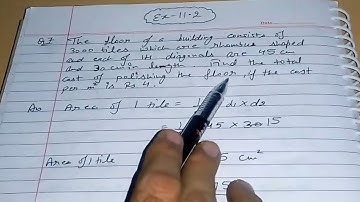 Ex-11-2
Date
Q.7 The floor of a building consists of
3000 tiles which are rhombus shaped
and each of its diagonals are 45 cm
and 30 cm in length. Find the total
cost of polishing the floor, if the cost
per m² is Rs 4.
Area of 1 tile = d1 x d2
= 45 x 30 15
Area of 1 tile 5 cm²